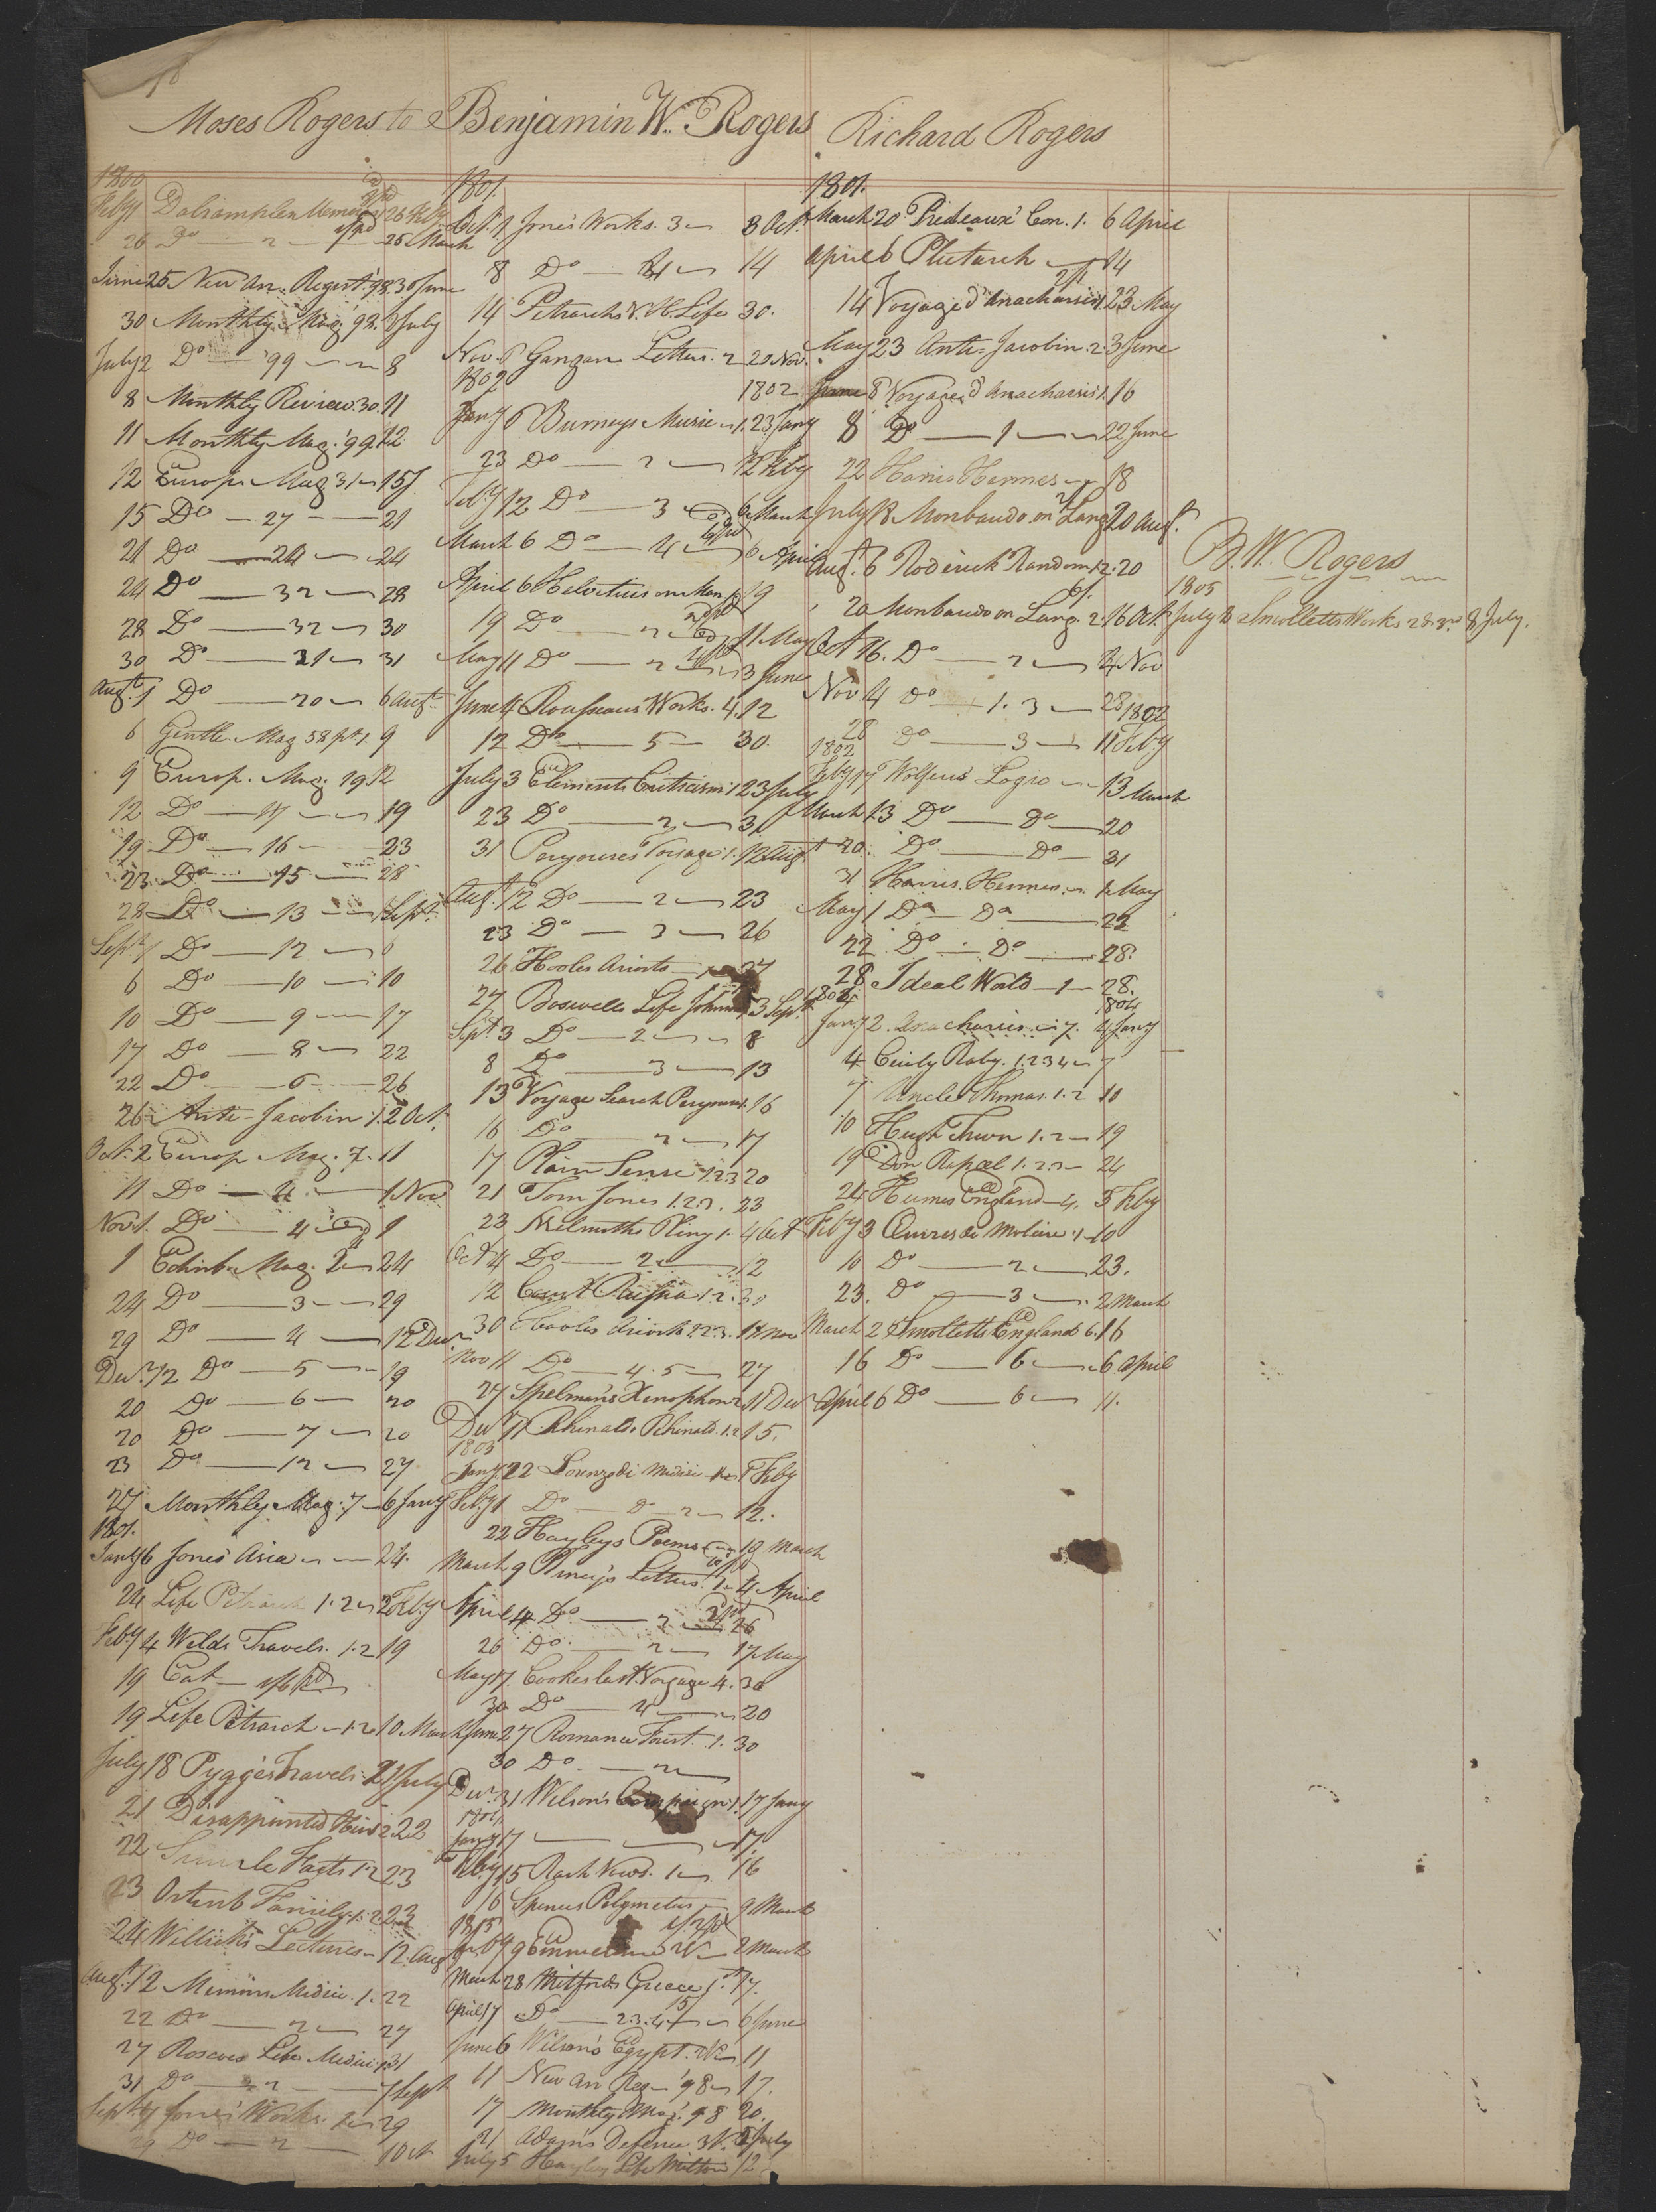 Moses Rogers to Benjamin W. Rogers
Richard Rogers
1800
Feby 1 Dalrample Memoirs 26 Feby
26 Do 2 25 March
June 25 New An. Regist. '98. 30 June
30 Monthly Mag. '98. 2 July
July 2 Do '99 8
8 Monthly Review 30. 11
11 Monthly Mag. '99. 12
12 Europ. Mag. 31 15
15 Do 27 21
21 Do 24
24 Do 32 28
28 Do 32 30
30 Do 21 31
Augt. 1 Do 20 6 Augt
6 Gentle. Mag 58 pt. 1. 9
9 Europ. Mag. 19. 12
12 Do 17 19
19 Do 16 23
23 Do 15 28
28 Do 13 1 Sept
Sept. 1 Do 12 6
6 Do 10 10
10 Do 9 17
17 Do 8 22
22 Do 6 26
26 Anti-Jacobin 1. 2 Oct.
Oct. 2 Europ Mag. 7. 11
11 Do 4 1 Nov
Nov. 1. Do 4 1
1 Edinb. Mag. 2 24
24 Do 3 29
29 Do 4 12 Decr
Decr. 12 Do 5 19
20 Do 6 20
20 Do 7 20
23 Do 12 27
27 Monthly Mag. 7 6 Jany
1801.
Jany 6 Jones Asia 24.
24 Life Petrarch 1. 2 2 Feby
Feby 4 Welds Travels. 1. 2 19
19 Cat
19 Life Petrarch 1. 2 10 March
July 18 Pygges Travels 21 July
21 Disappointed Heir 2. 22
22 Facts 1. 2 23
23 Ostent Family 1. 2. 23
24 Willich's Lectures 12. Aug
Augt. 12 Memoirs Medici. 1. 22
22 Do 2 27
27 Roscoes Life Medici 1. 31
31 Do 2 7 Sept
Sept. 7 Jones' Works. 29
29 Do 2 1 Oct
1801.
Oct. 1 Jones Works. 3 8 Oct.
8 Do 14
14 Petrarchs Life 30.
Nov. 6 Gangan. Letters. 2 20 Nov.
1802 1802
Jany 6 Burneys Music 1. 23 Jany
23 Do 2 12 Feby
Feby 12 Do 3 6 March
March 6 Do 4 6 April
April 6 Helvetius on Man 19
19 Do 2 11 May
May 11 Do 2 3 June
June 4 Rousseau's Works. 4. 12
12 Do 5 30.
July 3 Elements Criticism 1 23 July
23 Do 2 31
31 Perjouses Voyage 1. 12 Augt
Augt. 12 Do 2 23
23 Do 3 26
26 Hooles Ariosto 27
27 Boswells Life Johnson 3 Sept.
Sept 3 Do 2 8
8 Do 3 13
13 Voyage Search Perjouse 1. 16
16 Do 2 17
17 Plain Sense 1. 2 3 20
21 Tom Jones 1. 2. 3. 23
23 Melmoths Pliny 1. 4 Oct
Oct 4 Do 2 12
12 Court Russia 1. 2. 30
30 Hooles Ariosto 1. 2. 3. 11 Nov
Nov 11 Do 4. 5 27
27 Spelman's Xenophon 2 11 Decr
Decr 11 Rhinaldo Rhinald. 1. 2 15.
1803
Jany. 22 Lorenzo di Medici 1 Feby
Feby 1 Do 2 12.
22 Hayleys Poems 9 March
March 9 Pliny's Letters. 1 4 April
April 4 Do 2 26
26 Do 2 17 May
May 17. Cookes last Voyage 4. 30
30 Do 4 20
June 27 Romance Forest. 1. 30
30 Do. 2
Decr. 31 Wilson's Campaign 1. 17 Jany
1804
Jany 17 17.
Feby 15 1 16
16 Spences Polymetis 9 March
1805
Feby 9 Emmeline 2 March
March 28 Mitfords Greece 1. 17.
April 17 Do 2. 3. 4. 5 6 June
June 6 Wilson's Egypt. 11
11 New An Reg '98 17.
17 Monthly Mag. 98 20.
21 Adam's Defence 3 V. 5 July
July 5 Hayley Life Milton 12
1801.
March 20 Prideaux' Con. 1. 6 April
April 6 Plutarch 14
14 Voyage d'Anacharsis 1. 23 May
May 23 Anti-Jacobin. 2 3 June
June 8 Voyage d'Anacharsis 1. 16
8 Do 1 22 June
22 Harris Hermes 18
July 18 Monbaudo on Lang 20 Augt.
Augt. 6 Roderick Random 1. 2. 20
20 Monbaudo on Lang. 2. 16 Oct
Oct 16. Do 2 4 Nov
Nov 4 Do 1. 3 28
1802
28 Do 3 11 Feby
1802
Feby 17 Wolfeus' Logic 13 March
March 13 Do Do 20
20. Do Do 31
31 Harris Hermes 1 May
May 1 Do Do 22
22. Do Do 28.
28 Ideal World 1 28.
1804 1804
Jany 2. Anacharsis 7. 4 Jany
4 Cicily Raby. 1. 2 3 4 7
7 Uncle Thomas. 1. 2 10
10 Hugh Trevor 1. 2 19
19 Don Rapael 1. 2. 3 24
24 Humes England 4. 3 Feby
Feby 3 Œuvres de Moliere 1 10
10 Do 2 23.
23. Do 3 2 March
March 2 Smolletts England 6. 16
16 Do 6 6 April
April 6 Do 6 11.
B. W. Rogers
1805
July Smolletts Works 8 July.